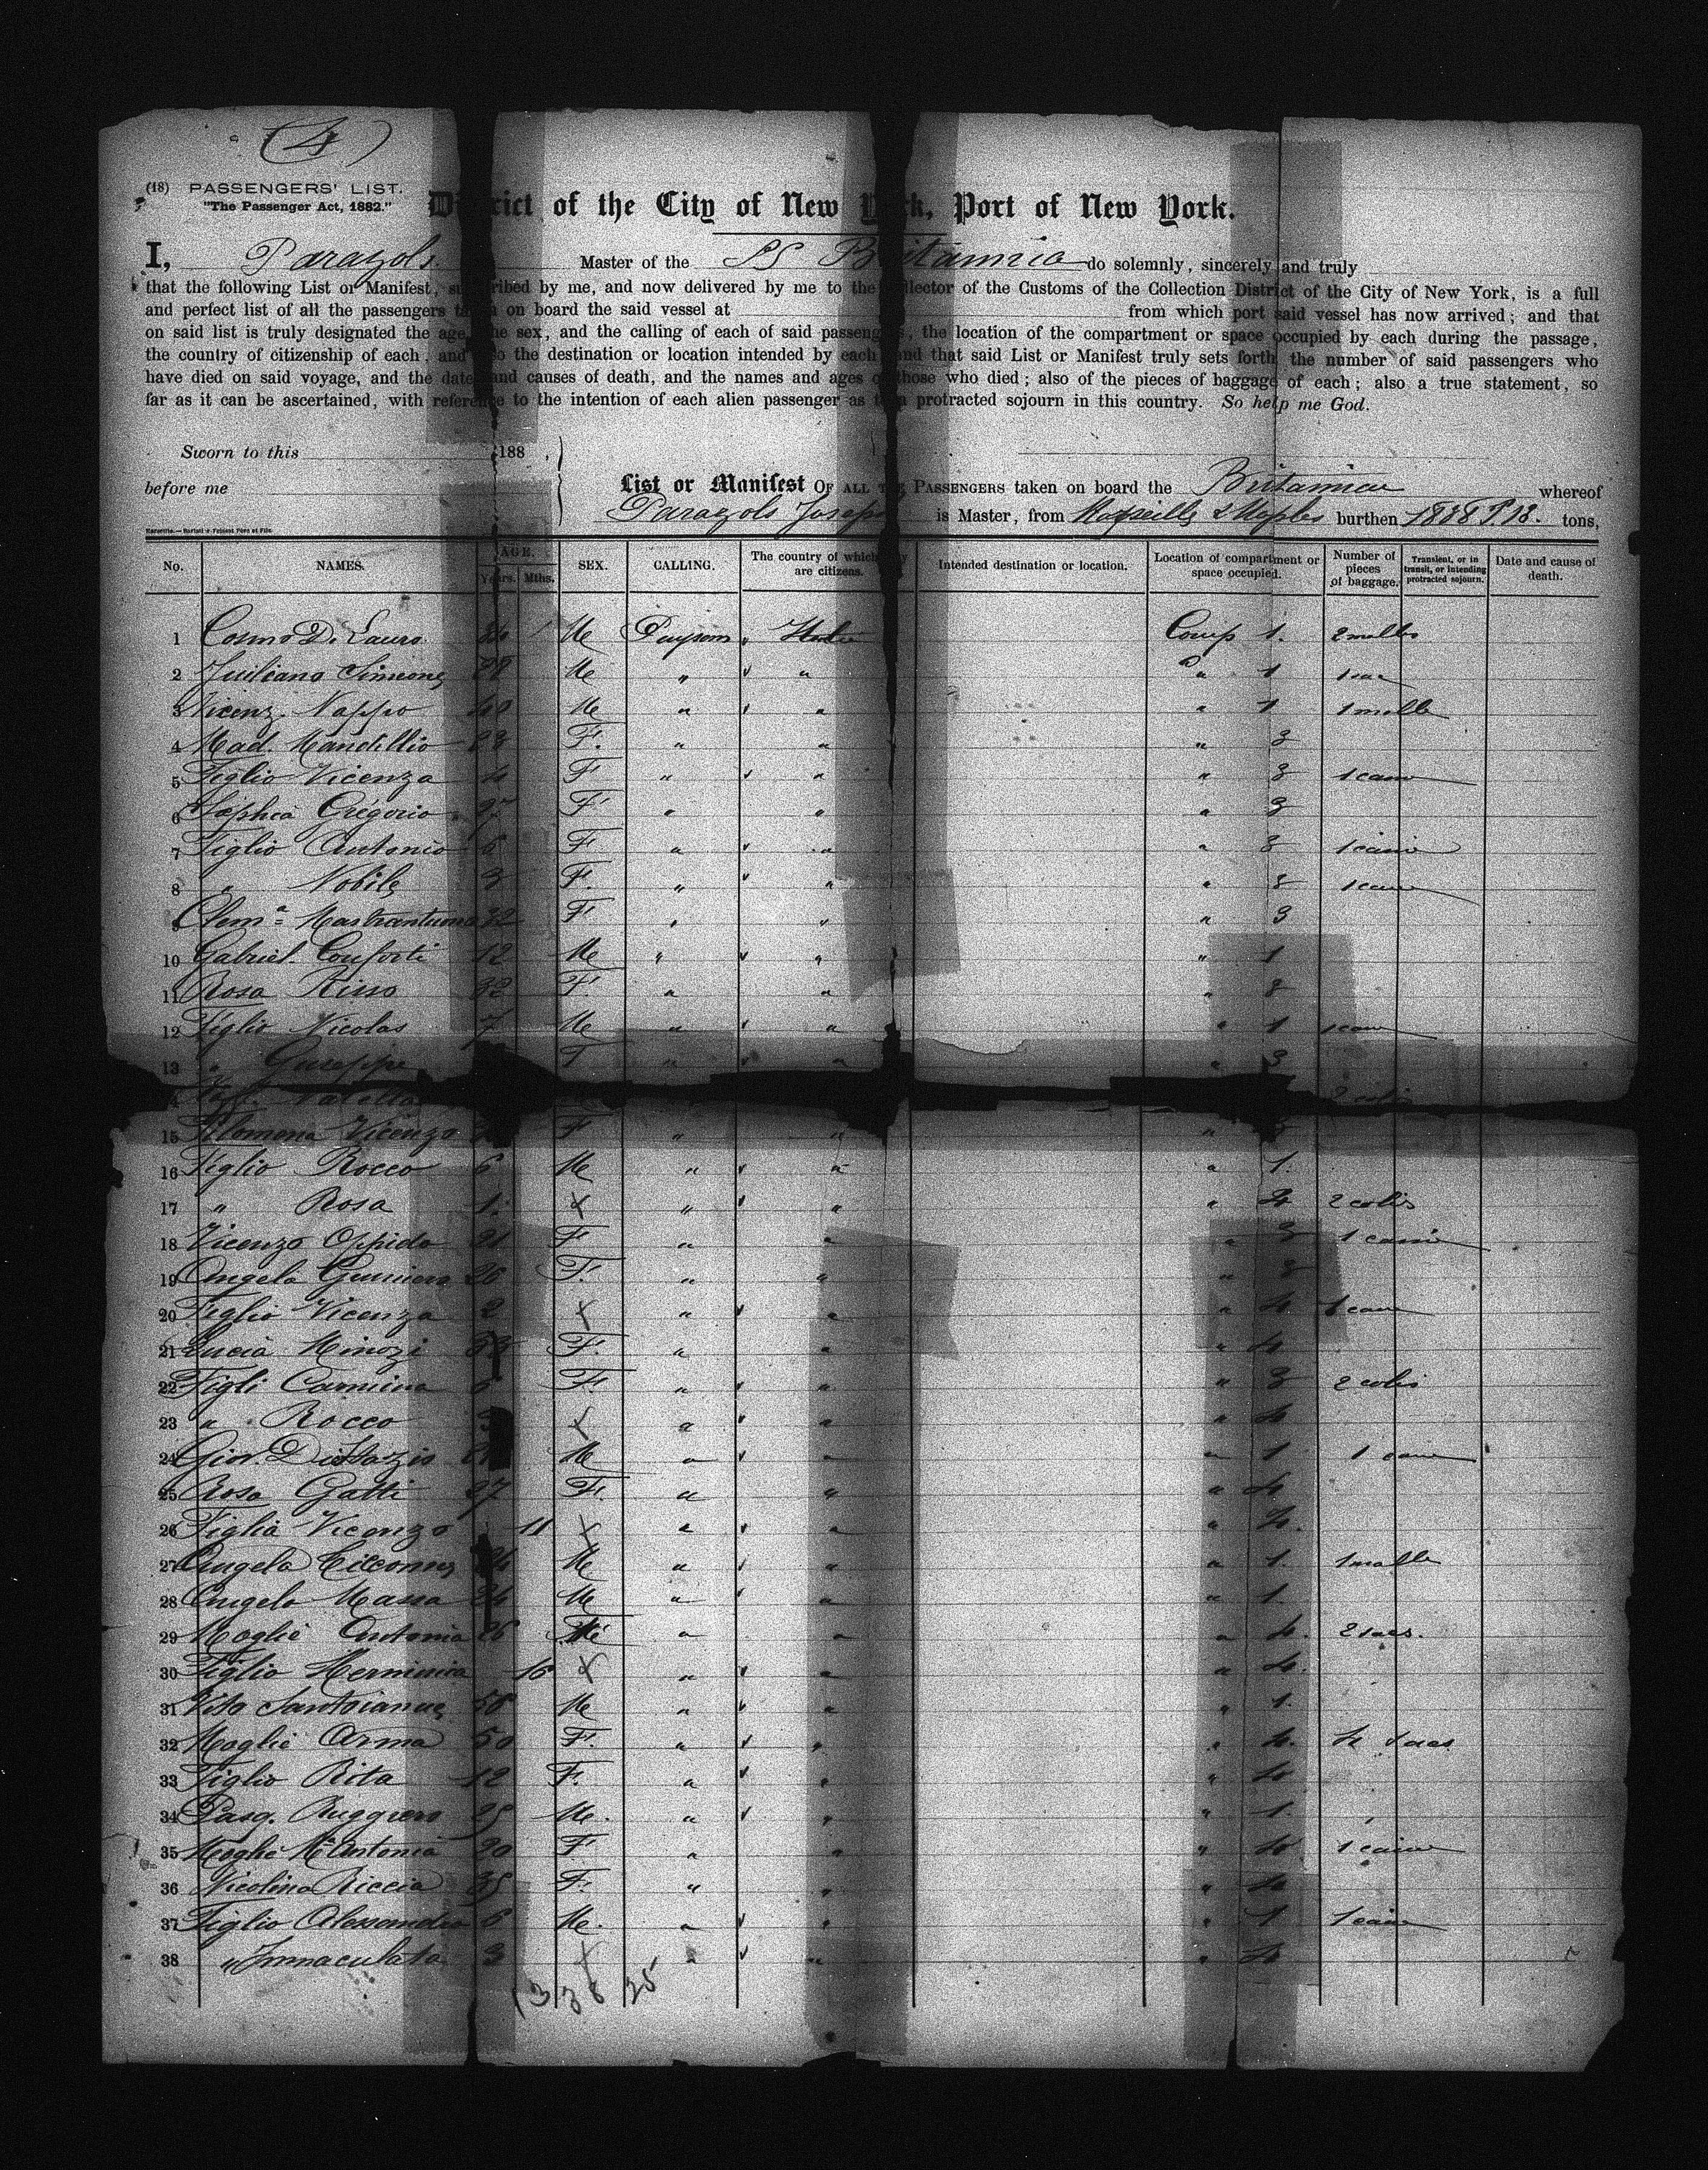 (4)
(18) PASSENGERS' LIST.
"The Passenger Act, 1882."
District of the City of New York, Port of New York.
I, Parazols Master of the SS Britannia do solemnly, sincerely and truly
that the following List or Manifest, subscribed by me, and now delivered by me to the Collector of the Customs of the Collection District of the City of New York, is a full
and perfect list of all the passengers taken on board the said vessel at from which port said vessel has now arrived; and that
on said list is truly designated the age, the sex, and the calling of each of said passengers, the location of the compartment or space occupied by each during the passage,
the country of citizenship of each, and also the destination or location intended by each and that said List or Manifest truly sets forth the number of said passengers who
have died on said voyage, and the date and causes of death, and the names and ages of those who died; also of the pieces of baggage of each; also a true statement, so
far as it can be ascertained, with reference to the intention of each alien passenger as to a protracted sojourn in this country. So help me God.
Sworn to this 188 ,
before me
List or Manifest OF ALL THE PASSENGERS taken on board the Britannia whereof
Parazols Joseph is Master, from Marseille & Naples burthen 1888 tons,
No. NAMES. AGE. Years. Mths. SEX. CALLING. The country of which they are citizens. Intended destination or location. Location of compartment or space occupied. Number of pieces of baggage. Transient, or in transit, or intending protracted sojourn. Date and cause of death.
1 Cosmo Di Lauro M Italie Comp 1. 2 malles
2 Juiliano Simeone 28 M " " " 1
3 Vicenz. Nappo 40 M " " " 1 1 malle
4 Mad. Mandillio 23 F. " " " 3
5 Figlio Vicenza 4 F " " " 3
6 Grégorio 27 F " " " 3
7 Figlio Antonio 6 F " " " 3
8 " Nobile 3 F. " " " 3
9 Clem.a Mastrantuono 32 F " " " 3
10 Gabriel. Conforti 12 M " " " 1
11 Rosa 32 F. " " " 3
12 Figlio Nicolas 7 M " " " 1
13 " Guseppe F " " " 3
14 2 colis
15 Filomena Vicenzo F " " "
16 Figlio Rocco 6 M " " " 1.
17 " Rosa 1. X " " " 4 2 colis
18 Vicenzo Oppido 21 F " " " 3
19 Angela 26 F. " " " 3
20 Figlio Vicenza 2 X " " " 4
21 Lucia Minozi 33 F. " " " 4
22 Figli Carmina 6 F. " " " 3 2 colis
23 " Rocco 3 X " " " 4
24 Gior. M " " " 1
25 Rosa Gatti 27 F. " " " 4
26 Figlia Vicenzo 11 X " " " 4.
27 Angelo Ciccone M " " " 1. 1 malle
28 Angelo Massa 24 M " " " 1.
29 Moglie Antonia 26 " " " 4. 2 sacs.
30 Figlio Herminia 10 X " " " 4.
31 Vito Santoianne 50 M " " " 1.
32 Moglie Anna 50 F. " " " 4. 4 sacs
33 Figlio Rita 12 F. " " " 4
34 Pasq. Ruggiero 25 M. " " " 1.
35 Moglie Ma Antonia 20 F " " " 4
36 Nicolina Riccia 35 F. " " " 4
37 Figlio Alessandro 6 M. " " " 1
38 " Immaculata 3 X " " " 4